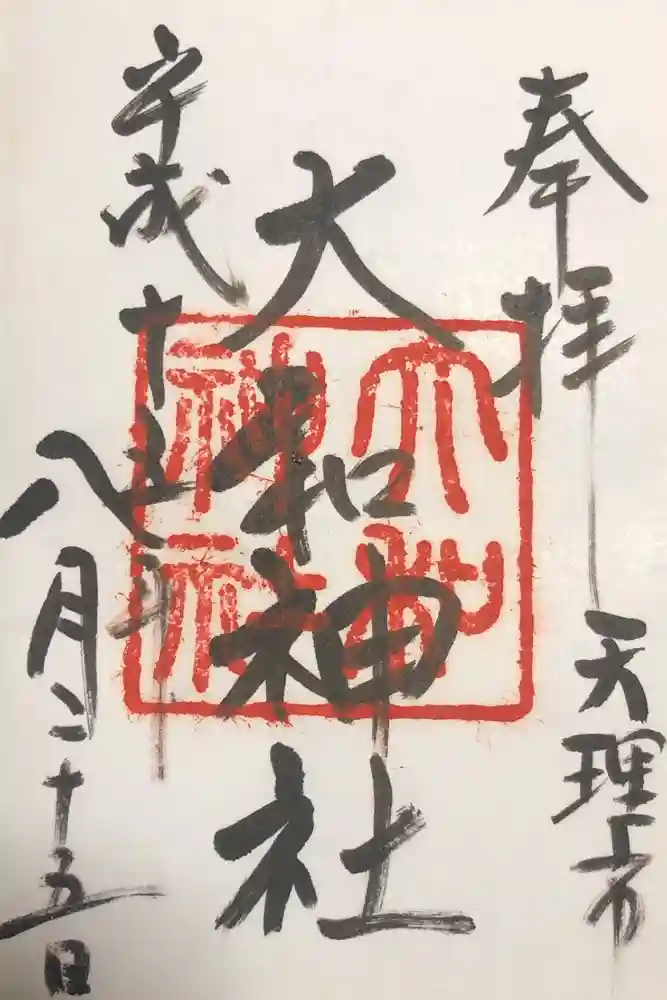 奉拝
天理市
大和神社
大和神社
平成十八年
八月二十五日